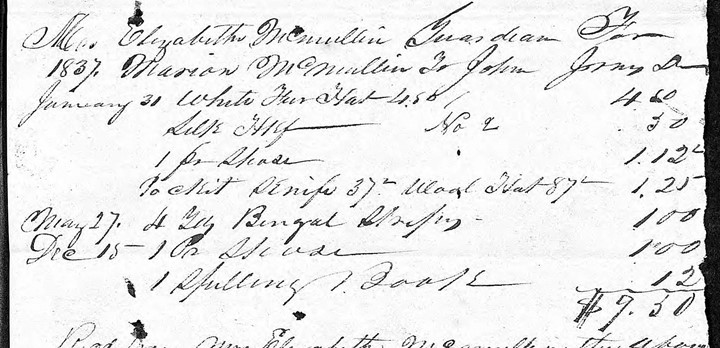 Mrs Elizabeth Mcmullin Guardian For
1837. Marion McMullin To John Dr
January 31 White Fur Hat 4.50 4 50
Silk Hkf No 2 .50
1 pr Shoose 1.12½
Pocket Knife 37½ Wool Hat 87½ 1.25
May 27. 4 Yds Bengal Stripes 1 00
Dec 15 1 Pr Shoose 1 00
1 Spelling Book 12
$9.50
Mrs Elizabeth